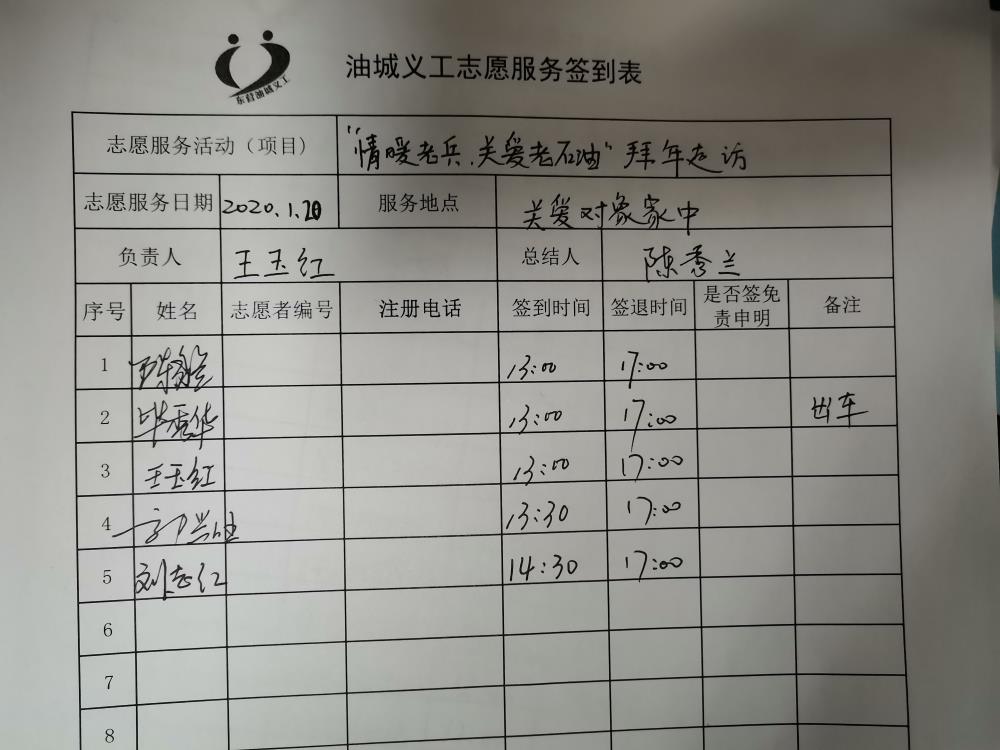 东营油城义工
油城义工志愿服务签到表
志愿服务活动（项目） “情暖老兵，关爱老石油”拜年走访
志愿服务日期 2020.1.20 服务地点 关爱对象家中
负责人 王玉红 总结人 陈秀兰
序号 姓名 志愿者编号 注册电话 签到时间 签退时间 是否签免责申明 备注
1 13:00 17:00
2 毕秀华 13:00 17:00 出车
3 王玉红 13:00 17:00
4 13:30 17:00
5 刘志红 14:30 17:00
6
7
8